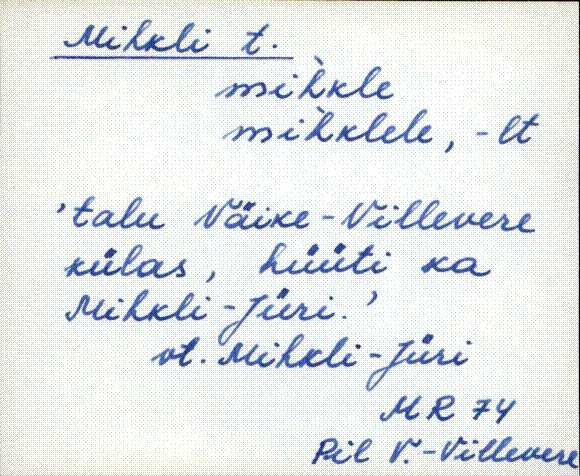 Mihkli t.
mìhkle
mìhklele, -lt
'talu Väike-Villevere
külas, hüüti ka
Mihkli-Jüri.'
vt. Mihkli-Jüri
MR 74
Pil V.-Villevere